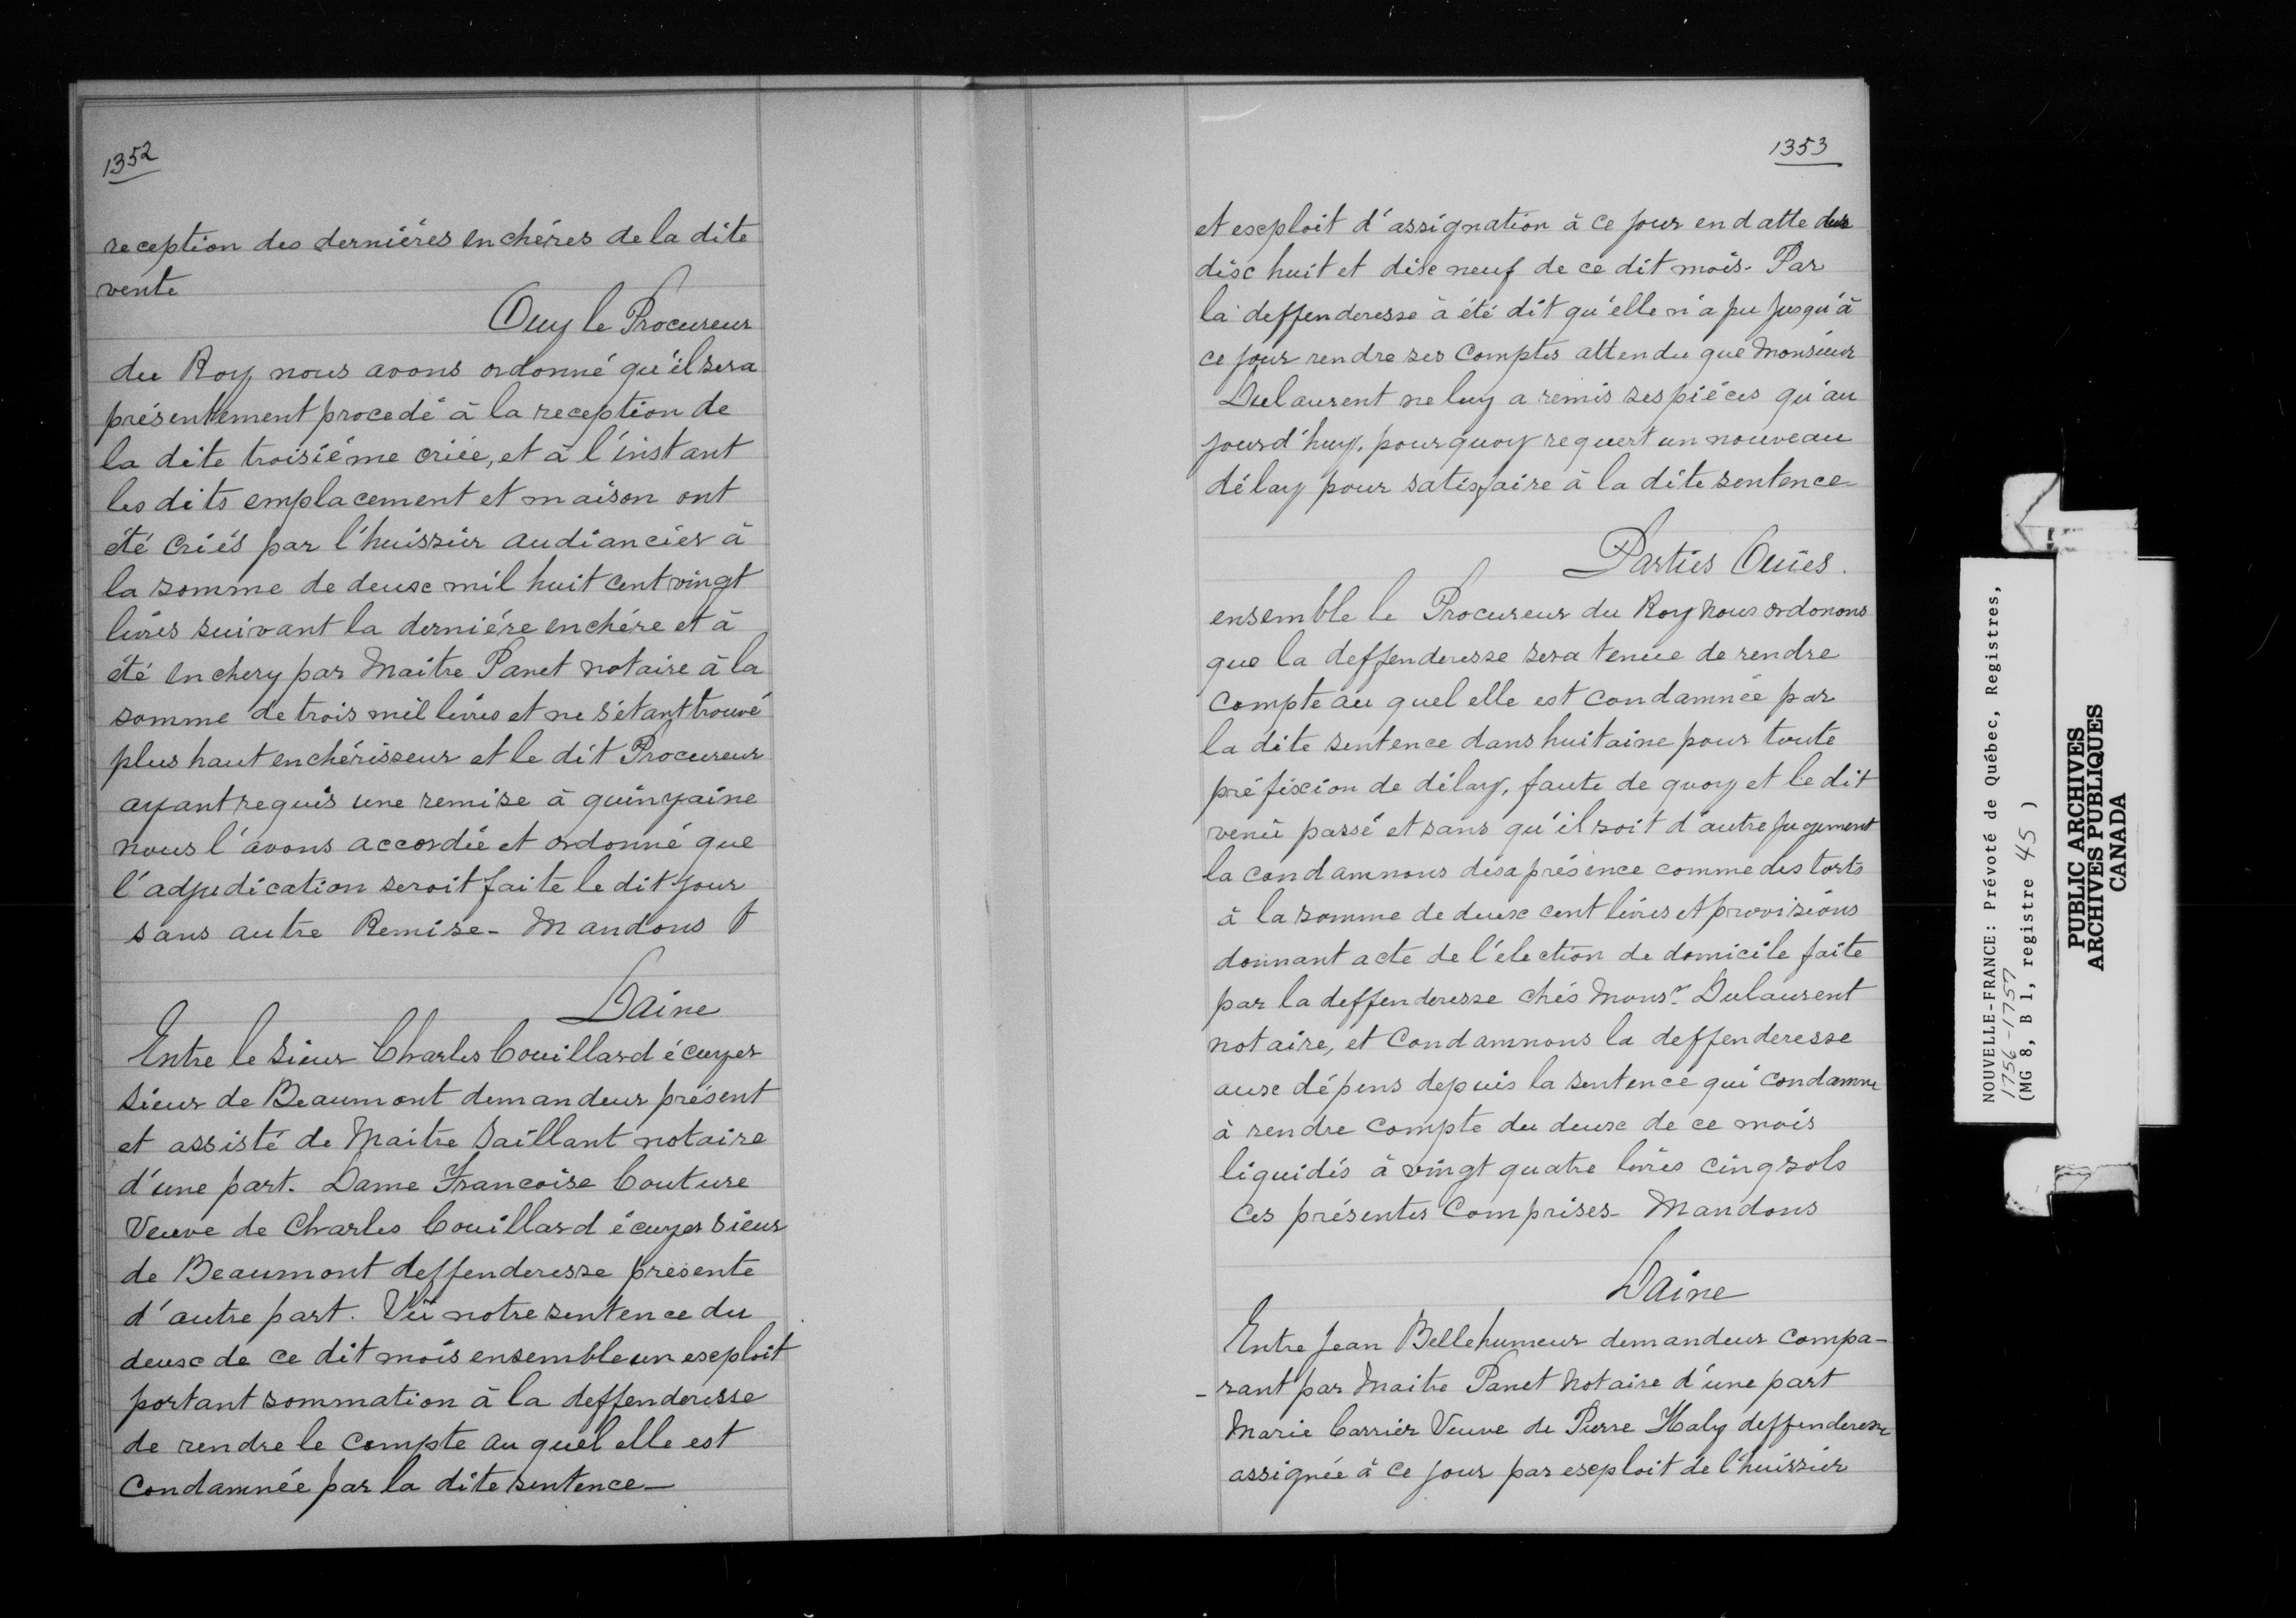 1352
reception des derniéres enchéres de la dite
vente
Ouy le Procureur
du Roy nous avons ordonné qu'il sera
présentement procedé à la reception de
la dite troisiéme criée, et à l'instant
les dits emplacement et maison ont
été criés par l'huissier audiancier à
la somme de deux mil huit cent vingt
livres suivant la derniére enchére et à
été enchery par Maitre Panet notaire à la
somme de trois mil livres et ne s'étant trouvé
plus haut enchérisseur et le dit Procureur
ayant requis une remise à quinzaine
nous l'avons accordée et ordonné que
l'adjudication seroit faite le dit jour
sans autre Remise - Mandons
Daine
Entre le Sieur Charles Couillard écuyer
Sieur de Beaumont demandeur présent
et assisté de Maitre Saillant notaire
d'une part. Dame Francoise Couture
Veuve de Charles Couillard écuyer Sieur
de Beaumont deffenderesse présente
d'autre part. Vû notre sentence du
deux de ce dit mois ensemble un exploit
portant sommation à la deffenderesse
de rendre le compte au quel elle est
condamnée par la dite sentence —
1353
et exploit d'assignation à ce jour en datte des
dix huit et dix neuf de ce dit mois. Par
la deffenderesse à été dit qu'elle n'a pu jusqu'à
ce jour rendre ses comptes attendu que Monsieur
Dulaurent ne luy a remis ses piéces qu'au
jourd'huy, pourquoy requert un nouveau
délay pour satisfaire à la dite sentence
Parties Ouies.
ensemble le Procureur du Roy Nous ordonons
que la deffenderesse sera tenue de rendre
compte au quel elle est condamnée par
la dite sentence dans huitaine pour toute
préfixion de délay, faute de quoy et le dit
venû passé et sans qu'il soit d'autre jugement
la condamnons désaprésence comme des torts
à la somme de deux cent livres et provisions
donnant acte de l'élection de domicile faite
par la deffenderesse chés Monsr. Dulaurent
notaire, et condamnons la deffenderesse
aux dépens depuis la sentence qui condamne
à rendre compte du deux de ce mois
liquidés à vingt quatre livres cinq sols
ces présentes comprises - Mandons
Daine
Entre Jean Bellehumeur demandeur compa-
-rant par Maitre Panet Notaire d'une part
Marie Carrier Veuve de Pierre Haly deffenderesse
assignée à ce jour par exploit de l'huissier
NOUVELLE-FRANCE: Prévoté de Québec, Registres,
1756-1757
(MG 8, B 1, registre 45 )
PUBLIC ARCHIVES
ARCHIVES PUBLIQUES
CANADA